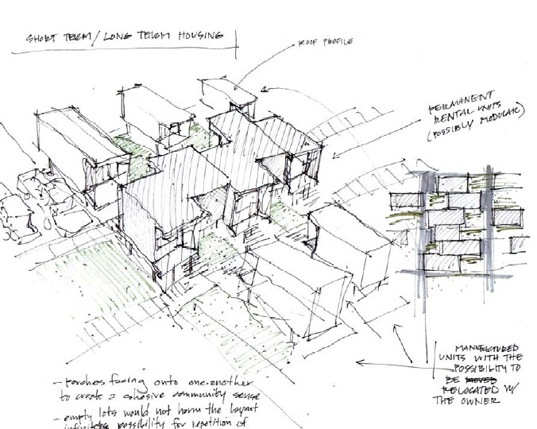 SHORT TERM / LONG TERM HOUSING
ROOF PROFILE
PERMANENT
RENTAL UNITS
(POSSIBLY MODULAR)
MANUFACTURED
UNITS WITH THE
POSSIBILITY TO
BE MOVED
RELOCATED W/
THE OWNER
- Porches facing onto one-another
to create a cohesive community sense
- empty lots would not harm the layout
infinite possibility for repetition of